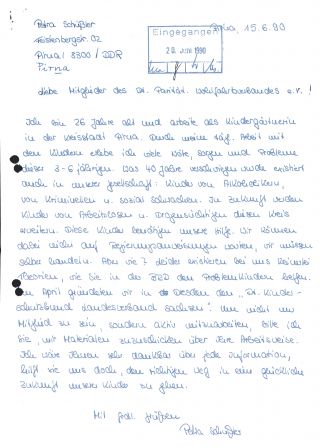 Petra Schüßler
Pirna, 15.6.90
02
Pirna / 8300 / DDR
Pirna
Eingegangen
20. Juni 1990
Liebe Mitglieder des Dt. Parität. Wohlfahrtverbandes e.V.!
Ich bin 26 Jahre alt und arbeite als Kindergärtnerin
in der Kreisstadt Pirna. Durch meine tägl. Arbeit mit
den Kindern erlebe ich viele Nöte, Sorgen und Probleme
dieser 3-6 jährigen. Was 40 Jahre verschwiegen wurde existiert
auch in unserer Gesellschaft: Kinder von Alkoholikern,
von Kriminellen u. sozial Schwachen. In Zukunft werden
Kinder von Arbeitslosen u. Drogensüchtigen diesen Kreis
erweitern. Diese Kinder benötigen unsere Hilfe. Wir können
dabei nicht auf Regierungsanweisungen warten, wir müssen
selber handeln. Aber wie? Leider existieren bei uns keinerlei
Theorien, wie sie in der BRD den Problemkindern helfen.
Im April gründeten wir in Dresden den "Dt. Kinder-
schutzbund Landesverband Sachsen". Um nicht nur
Mitglied zu sein, sondern aktiv mitzuarbeiten, bitte ich
Sie, mir Materialien zuzuschicken über Ihre Arbeitsweise.
Ich wäre Ihnen sehr dankbar über jede Information,
hilft sie uns doch, den richtigen Weg in eine glückliche
Zukunft unserer Kinder zu gehen.
Mit frdl. Grüßen
Petra Schüßler